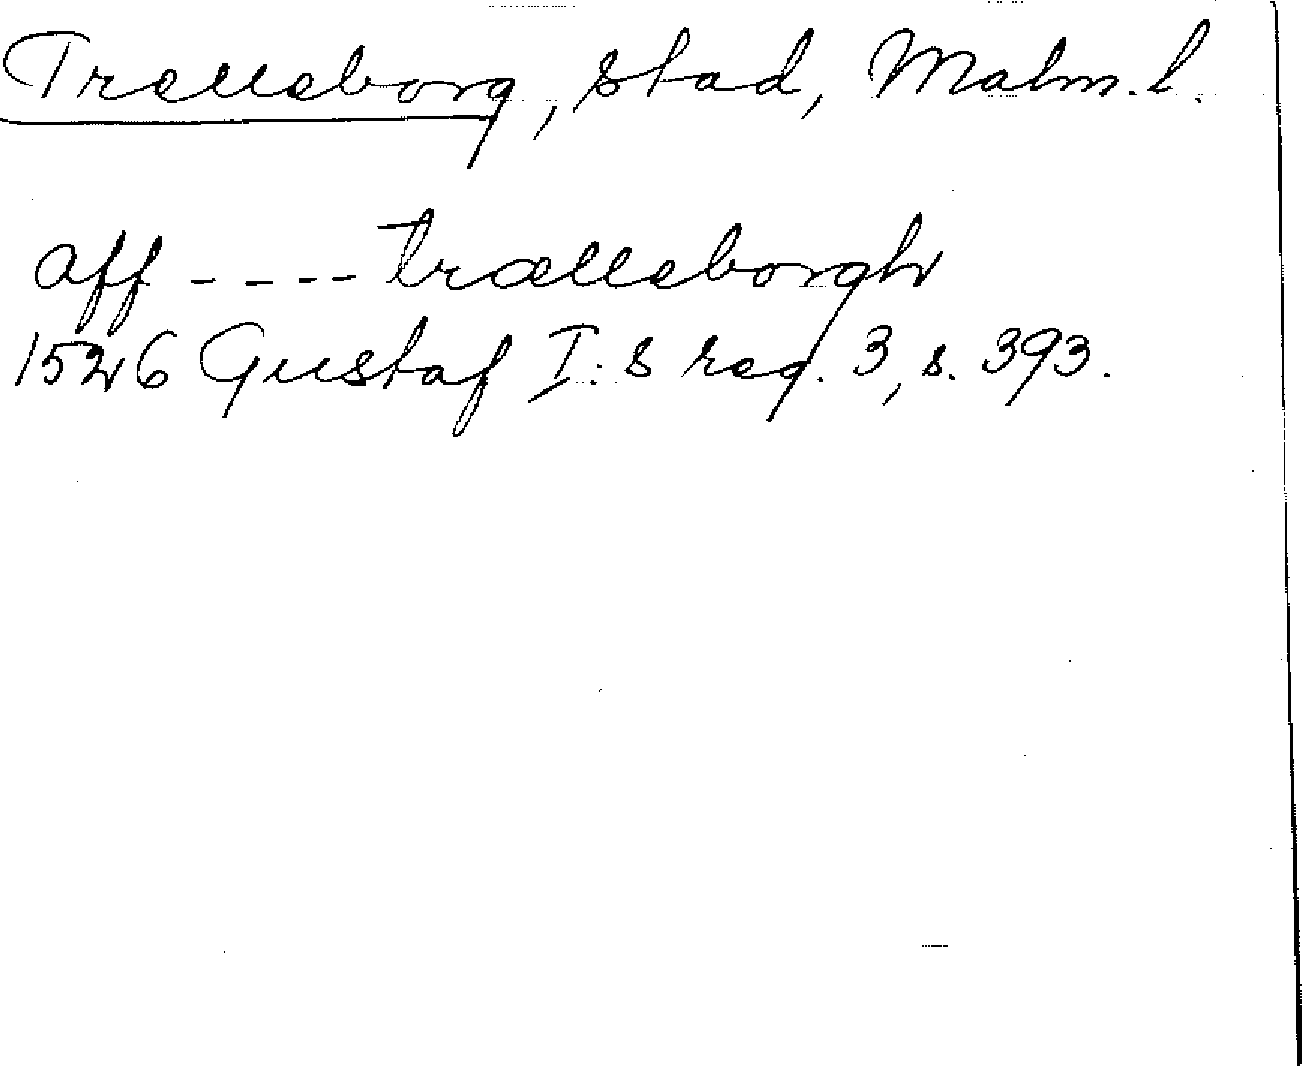 Trelleborg, stad, Malm. l.
aff - - - - trælleborgh
1526 Gustaf I:s reg. 3, s. 393.